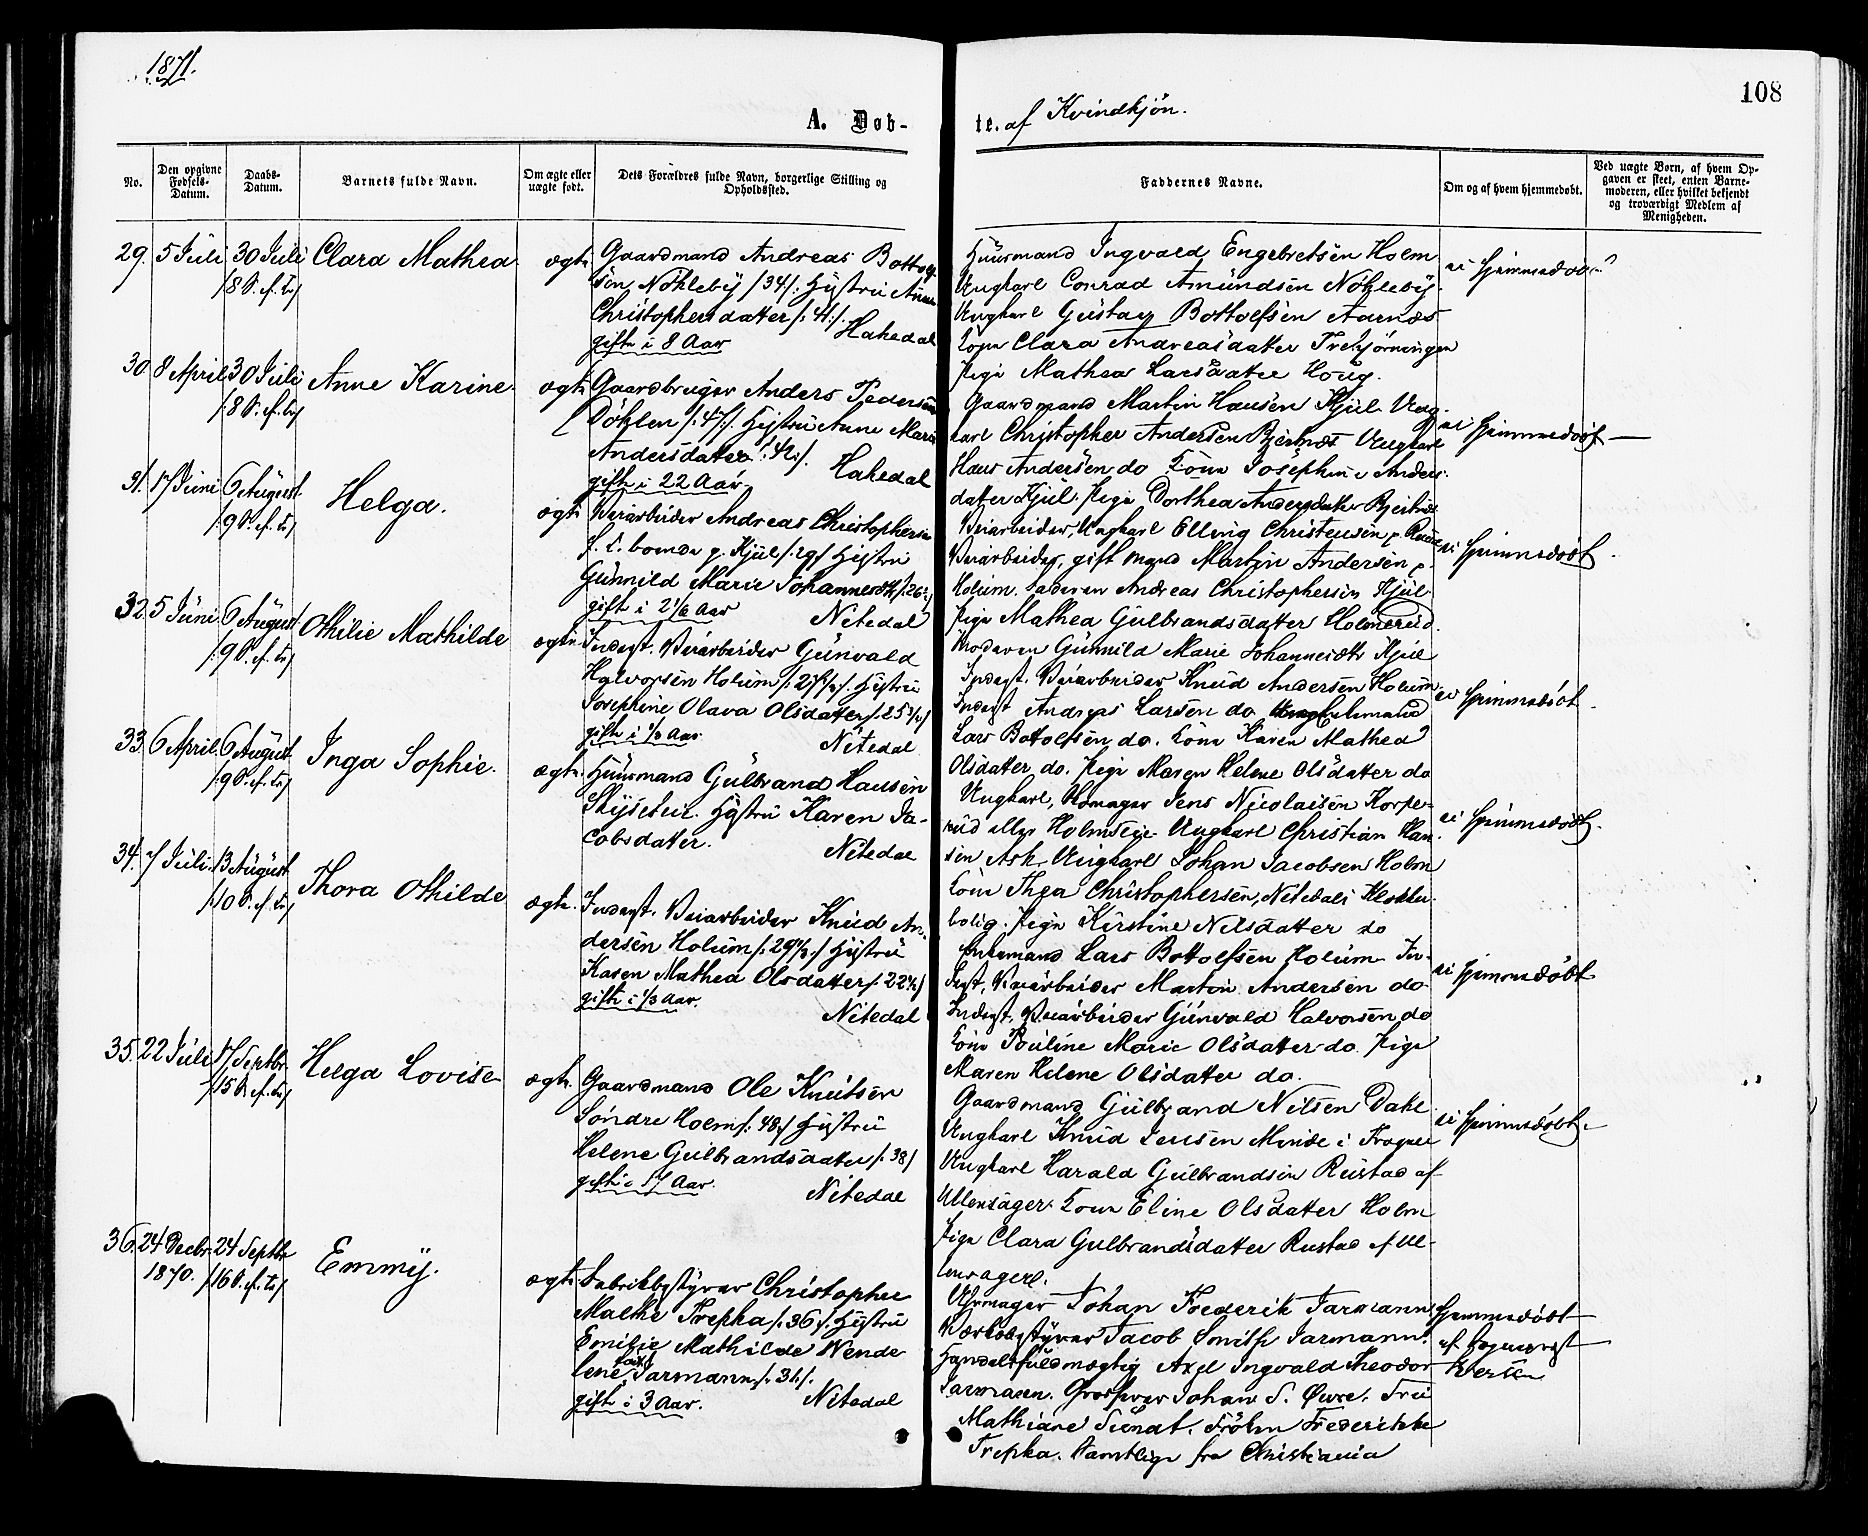 1871.
108
A. Døb-
te. af Kvindkjøn.
No.
Den opgivne Fødsels-Datum.
Daabs-Datum.
Barnets fulde Navn.
Om ægte eller uægte født.
Dets Forældres fulde Navn, borgerlige Stilling og Opholdssted.
Faddernes Navne.
Om og af hvem hjemmedøbt.
Ved uægte Børn, af hvem Op-
gaven er skeet, enten Barne-
moderen, eller hvilket bekjendt
og troværdigt Medlem af
Menigheden.
29. 5 Juli 30 Juli Clara Mathea ægte
/8 S. ef. Tr/
Gaardmand Andreas Bottog-
sen Nökleby /34/: Hustru Anne
Christophersdatter /:41:/.
gift i 8 Aar Hakedal
Huusmand Ingvald Engebretsen Holm
Ungkarl Conrad Amundsen Nökleby.
Ungkarl Gustav Bottolfsen Aarnæs
Kone Clara Andreasdatter Trehjørningen
Pige Mathea Larsdatter Houg.
ei hjemmedøbt
30 8 April 30 Juli Anne Karine ægte
/:8 S. ef. Tr/
Gaardbruger Anders Pedersen
Döhlen /:47:/ Hustru Anne Marie
Andersdatter /:42:/.
gift i 22 Aar. Hakedal
Gaardmand Martin Hansen Kjul. Ung-
karl Christopher Andersen Bjertnæs Ungkarl
Hans Andersen do Kone Josephine Anders-
datter Kjul. Pige Dorthea Andersdatter Bjertnæs
ei hjemmedøbt
31. 17 Juni 6 August Helga. ægte
/:9 S. ef. Tr/
Veiarbeider Andreas Christophersen
f. T. boende p. Kjul /:29/ Hustru
Gunnild Marie Johannesdtr /:26:/
gift i 2 1/6 Aar Nitedal
Veiarbeider, Ungkarl Elling Christensen p.
Veiarbeider, gift Mand Martin Andersen p.
Holum. Faderen Andreas Christophersen Kjul
Pige Mathea Gulbrandsdatter Holmerud.
Moderen Gunnild Marie Johannesdtr Kjul
ei hjemmedøbt
32. 5 Juni 6 August Othilie Mathilde ægte
/:9 S. ef. Tr/
Inderst. Veiarbeider Gunvald
Halvorsen Holum /:27 1/2/. Hustru
Josephine Olava Olsdatter /:25 1/2/
gift i 1/2 Aar. Nitedal
Inderst. Veiarbeider Knud Andersen Holum
Inderst Andreas Larsen do Enkemand
Lars Bottolfsen do. Kone Karen Mathea
Olsdatter do. Pige Maren Helene Olsdatter do
ei hjemmedøbt
33. 6 April. 6 August Inga Sophie. ægte
/:9 S. ef. Tr/
Huusmand Gulbrand Hansen
Skyseter. Hustru Karen Ja-
cobsdatter. Nitedal
Ungkarl, Uhrmager Jens Nicolaisen Korpe-
rud eller Holmseie. Ungkarl Christian Han-
sen Ask. Ungkarl Johan Jacobsen Holm
Kone Thea Christophersen, Nitedals Klokker-
bolig. Pige Kirstine Nilsdatter do
ei hjemmedøbt.
34. 7 Juli. 13 August Thora Othilde ægte.
/:10 S. ef. Tr/
Inderst. Veiarbeider Knud An-
dersen Holum /:29 1/2:/ Hustru
Karen Mathea Olsdatter /:22 1/2/
gift i 1/3 Aar. Nitedal
Enkemand Lars Bottolfsen Holum In-
derst, Veiarbeider Martin Andersen do
Inderst, Veiarbeider Gunvald Halvorsen do
Kone Pauline Marie Olsdatter do. Pige
Maren Helene Olsdatter do.
ei hjemmedøbt
35. 22 Juli 17 Septbr. Helga Lovise ægte.
/:15 S. ef. Tr/
Gaardmand Ole Knutsen
Söndre Holm /:48:/ Hustru
Helene Gulbrandsdatter /:38/
gift i 17 Aar. Nitedal
Gaardmand Gulbrand Nilsen Dahl
Ungkarl Knud Jensen Minde i Frogner
Ungkarl Harald Gulbrandsen Rustad af
Ullensager. Kone Eline Olsdatter Holm
Pige Clara Gulbrandsdatter Rustad af Ul-
lensager.
ei hjemmedøbt.
36. 24 Decbr. 24 Septbr Emmy. ægte
1870. /:16 S. ef. Tr/
Fabrikbestyrer Christopher
Malthe Trepka /:36:/. Hustru
Emilie Mathilde Wende
lene født Jarmann /:31:/.
gift i 3 Aar. Nitedal
Uhrmager Johan Frederik Jarmann
Værksbestyrer Jacob Smith Jarmann.
Handelsfuldmægtig Axel Ingvald Theodor
Jarmann. Grosserer Johan S. Øvre. Fru
Mathiane Sundt. Frøken Frederikke
Trepka. Samtlige fra Christiania
Hjemmedøbt
af Sogneprest
Iversen